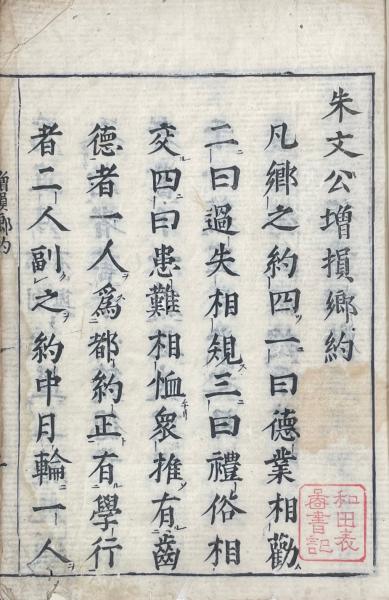 朱文公增損鄉約
凡鄉之約四一曰德業相勸
二曰過失相規三曰禮俗相
交四曰患難相恤衆推有齒
德者一人爲都約正有學行
者二人副之約中月輪一人
增損鄉約